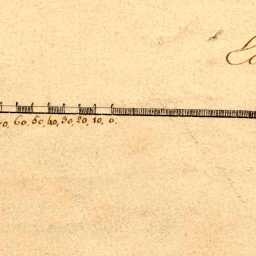 60, 50, 40, 30, 20, 10, 0.